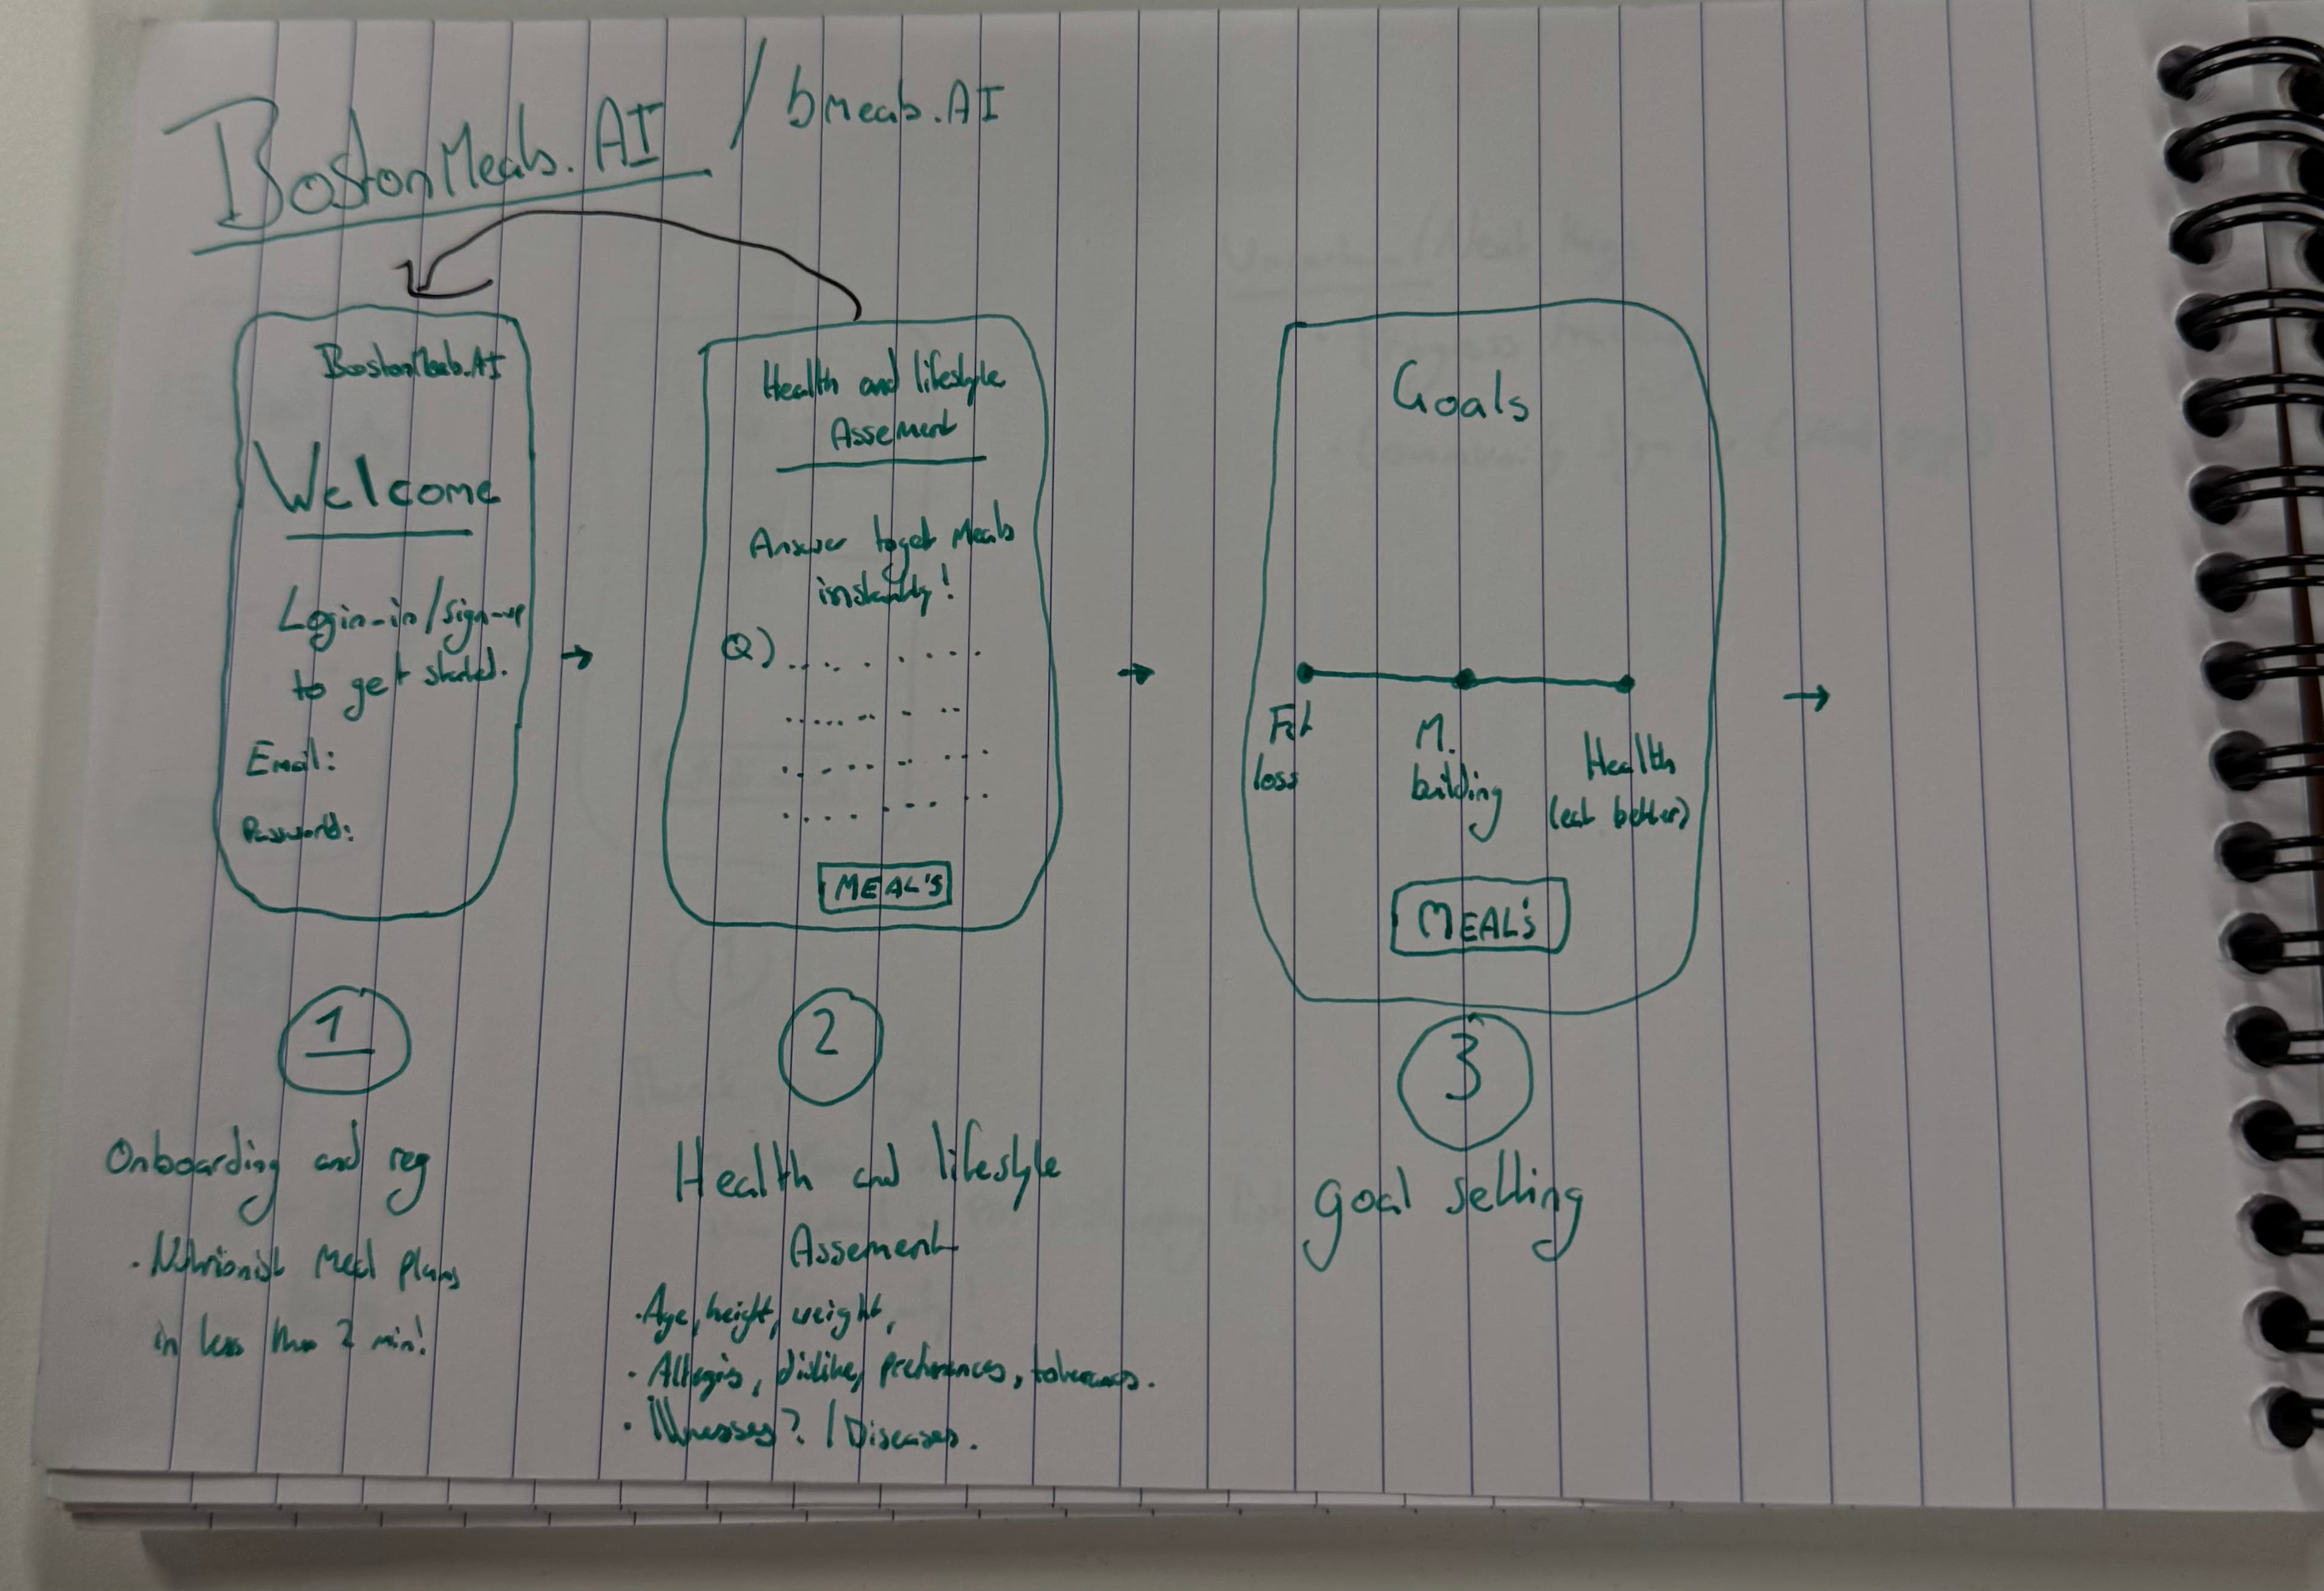 BostonMeals.AI / bmeals.AI
BostonMeals.AI
Welcome
Login-in/sign-up
to get started.
Email:
Password:
Health and lifestyle
Assement
Answer to get Meals
instantly!
Q)
MEAL'S
Goals
Fat
loss
M.
building
Health
(eat better)
MEAL'S
1
Onboarding and reg
. Nutrionist Meal plans
in less than 2 min!
2
Health and lifestyle
Assement
. Age, height, weight,
. Allergis, dislike, preferences,
. Illnesses? / Diseases.
3
goal setting